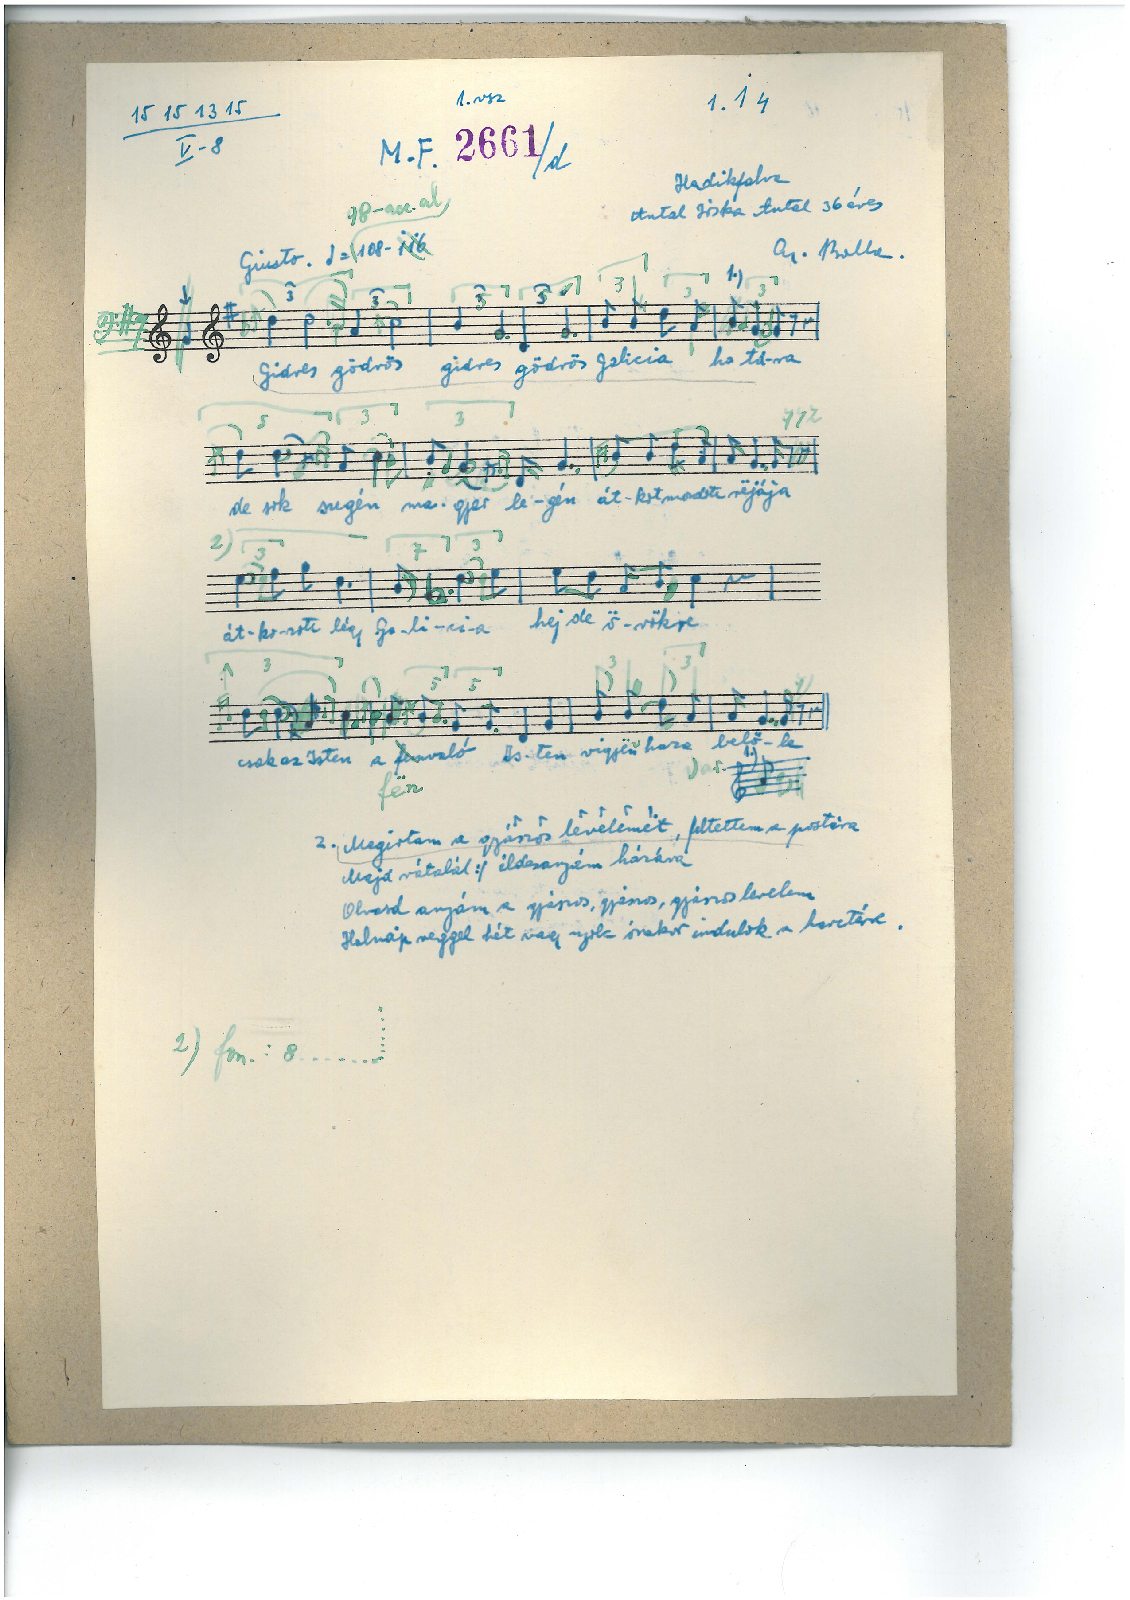 15 15 13 15
V-8
1. vsz
1. i 4
M.F. 2661/d
Hadikfalva
Antal Jóska Antal 36 éves
98-acc. al.
Giusto. = 108-116
Gy. Balla.
Gidres gödrös gidres gödrös Galicia határa
de sok szegén ma-gyar le-gén át-kotmondta rëjája
2)
át-ko-zott légy Ga-li-ci-a hej de ö-rökre
csak az Isten a fennvaló Is-ten vigyën haza belő-le
fën
Var. 1.)
2. Megirtam a gyászos lëvelemët, feltettem a postára
Majd rátalál :/ éldesanyám házára
Olvasd anyám a gyászos, gyászos, gyászos levelem
Holnap reggel hét vagy nyolc órakor indulok a harctérre.
2) fon.: 8.......